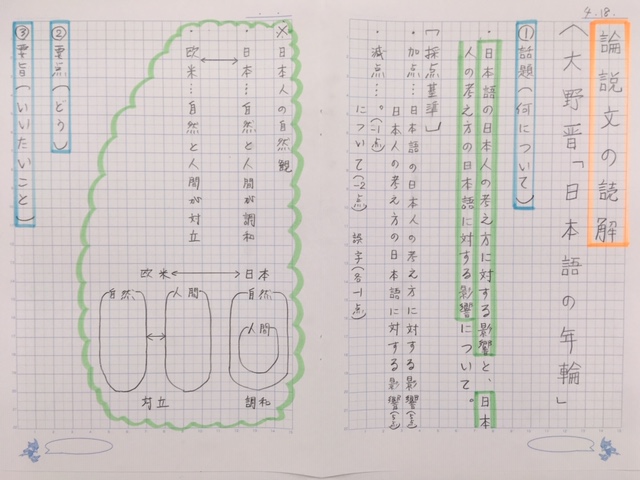 4.18.
論説文の読解
〈大野晋「日本語の年輪」
①話題(何について)
日本語の日本人の考え方に対する影響と、日本
人の考え方の日本語に対する影響について。
〔採点基準〕
・加点…日本語の日本人の考え方に対する影響(5点)
日本人の考え方の日本語に対する影響(5点)
・減点…。(-1点) 誤字(各-1点)
について(-2点)
※日本人の自然観
・日本…自然と人間が調和
・欧米…自然と人間が対立
日本
欧米
自然
人間
調和
人間
自然
対立
②要点(どう)
③要旨(いいたいこと)